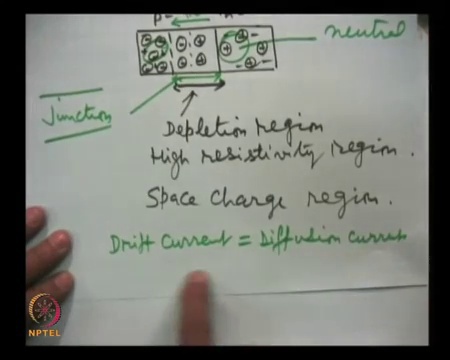 neutral
Junction
Depletion region
High resistivity region.
Space Charge region.
Drift Current = Diffusion Current
NPTEL